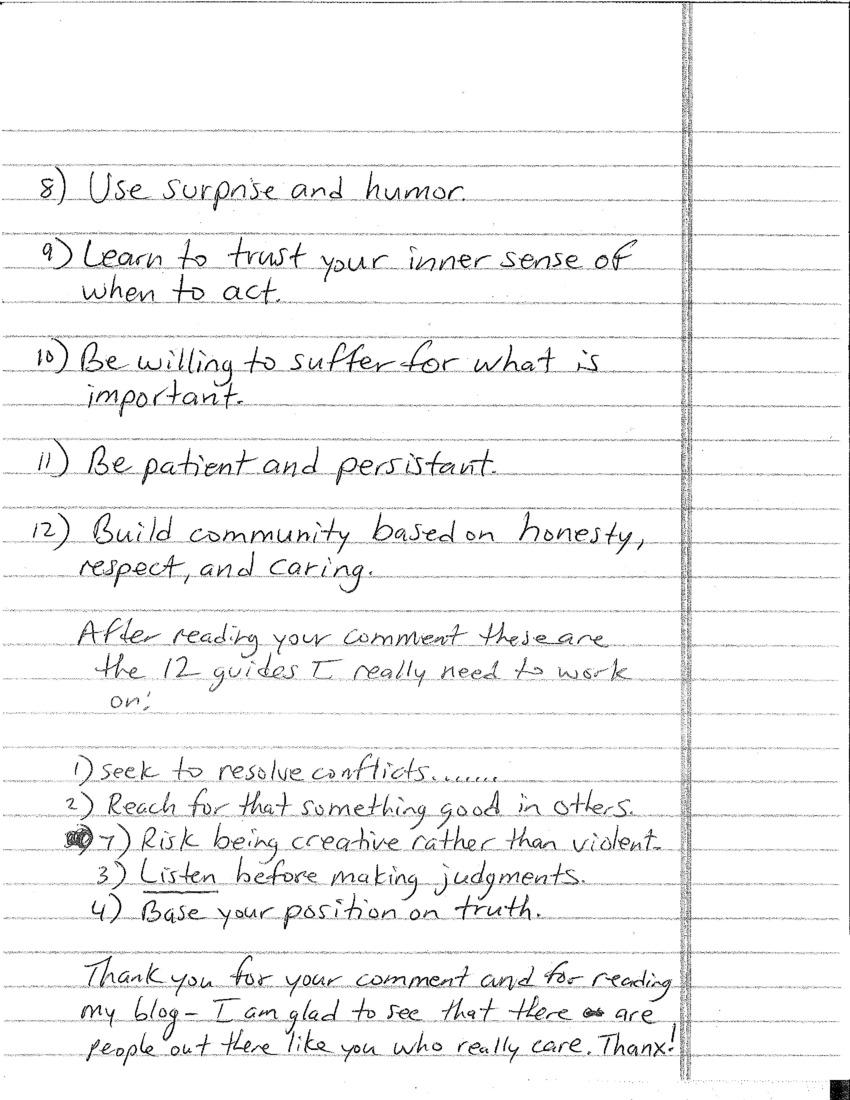 8) Use surprise and humor.
9) Learn to trust your inner sense of
when to act.
10) Be willing to suffer for what is
important.
11) Be patient and persistant.
12) Build community based on honesty,
respect, and caring.
After reading your comment these are
the 12 guides I really need to work
on:
1) seek to resolve conflicts.......
2) Reach for that something good in others.
7) Risk being creative rather than violent.
3) Listen before making judgments.
4) Base your position on truth.
Thank you for your comment and for reading
my blog – I am glad to see that there are
people out there like you who really care. Thanx!